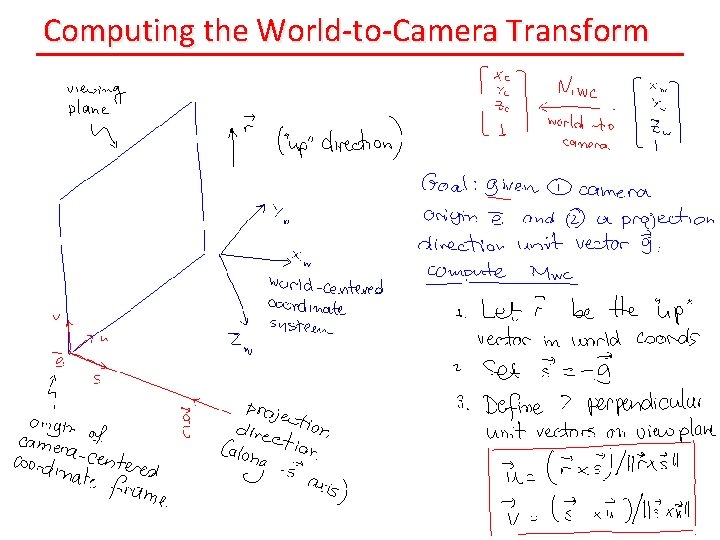 Computing the World-to-Camera Transform
viewing
plane
r⃗
("up" direction)
[ Xc Yc Zc 1 ]
Mwc
world-to
camera
[ Xw Yw Zw 1 ]
Goal: given ① camera
origin e̅ and ② a projection
direction unit vector g⃗,
compute Mwc
Yw
Xw
Zw
world-centered
coordinate
system
v
u
e̅
s
g
origin of
camera-centered
coordinate frame
projection
direction
(along -s⃗ axis)
1. Let r⃗ be the "up"
vector in world coords
2. Set s⃗ = -g⃗
3. Define 2 perpendicular
unit vectors on view plane
u⃗ = (r⃗ x s⃗)/||r⃗ x s⃗||
v⃗ = (s⃗ x u⃗)/||s⃗ x u⃗||